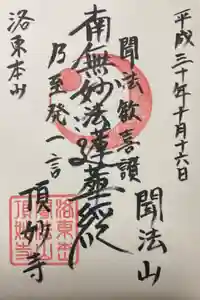 平成三十年十月十六日
聞法歓喜讃
聞法山
南無妙法蓮華経
乃至発一言
頂妙寺
洛東本山
洛東
聞法山
頂妙寺